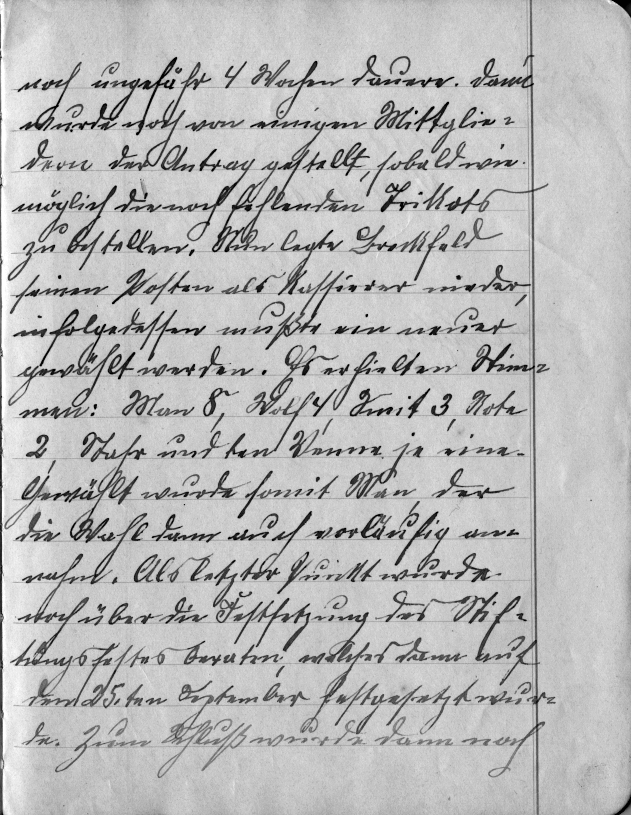 noch ungefähr 4 Wochen dauere. Dann
wurde noch von einigen Mittglie-
dern der Antrag gestellt, sobald wie
möglich die noch fehlenden Trikots
zu bestellen. Nun legte Breckfeld
seinen Posten als Kassierer nieder,
infolgedessen mußte ein neuer
gewählt werden. Es erhielten Stim-
men: Man 8, Wolf 4, Smit 3, Note
2, Stahr und ten Venne je eine.
Gewählt wurde somit Man, der
die Wahl dann auch vorläufig an-
nahm. Als letzter Punkt wurde
noch über die Festsetzung des Stif-
tungsfestes beraten, welches dann auf
dem 25.ten September festgesetzt wur-
de. Zum Schluß wurde dann noch